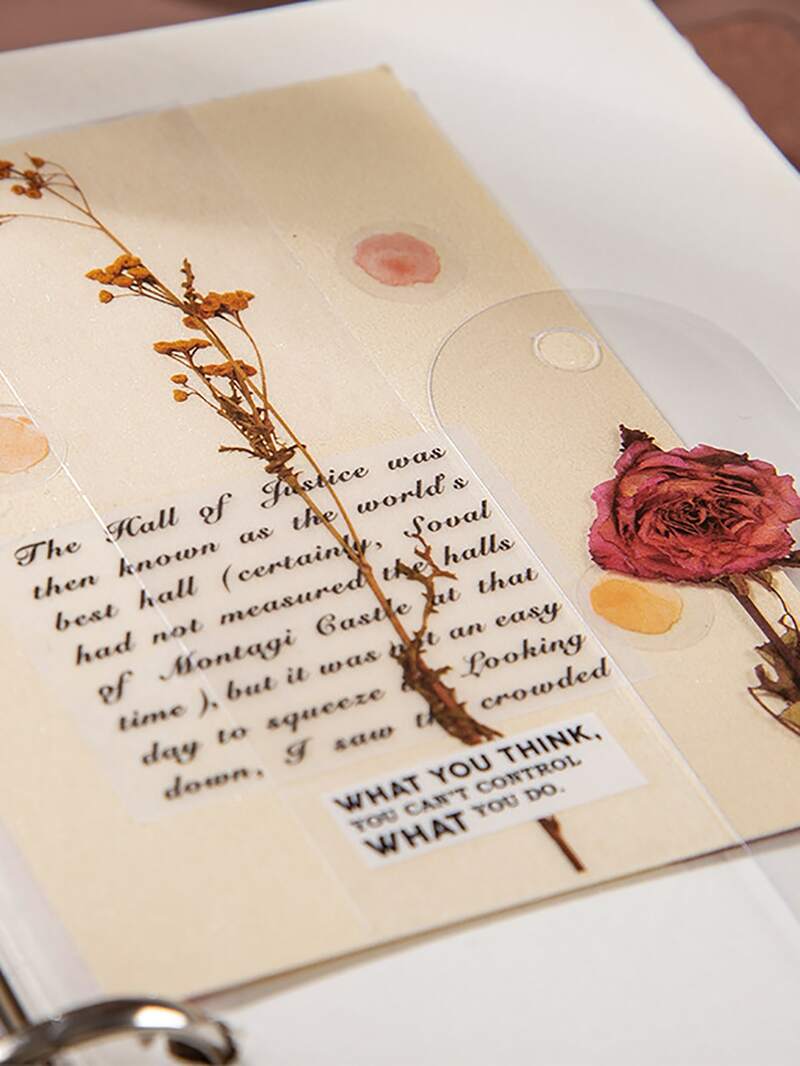 The Hall of Justice was
then known as the world's
best hall (certainly, Soval
had not measured the halls
of Montagi Castle at that
time ), but it was not an easy
day to squeeze Looking
down, I saw the crowded
WHAT YOU THINK,
YOU CAN'T CONTROL
WHAT YOU DO.